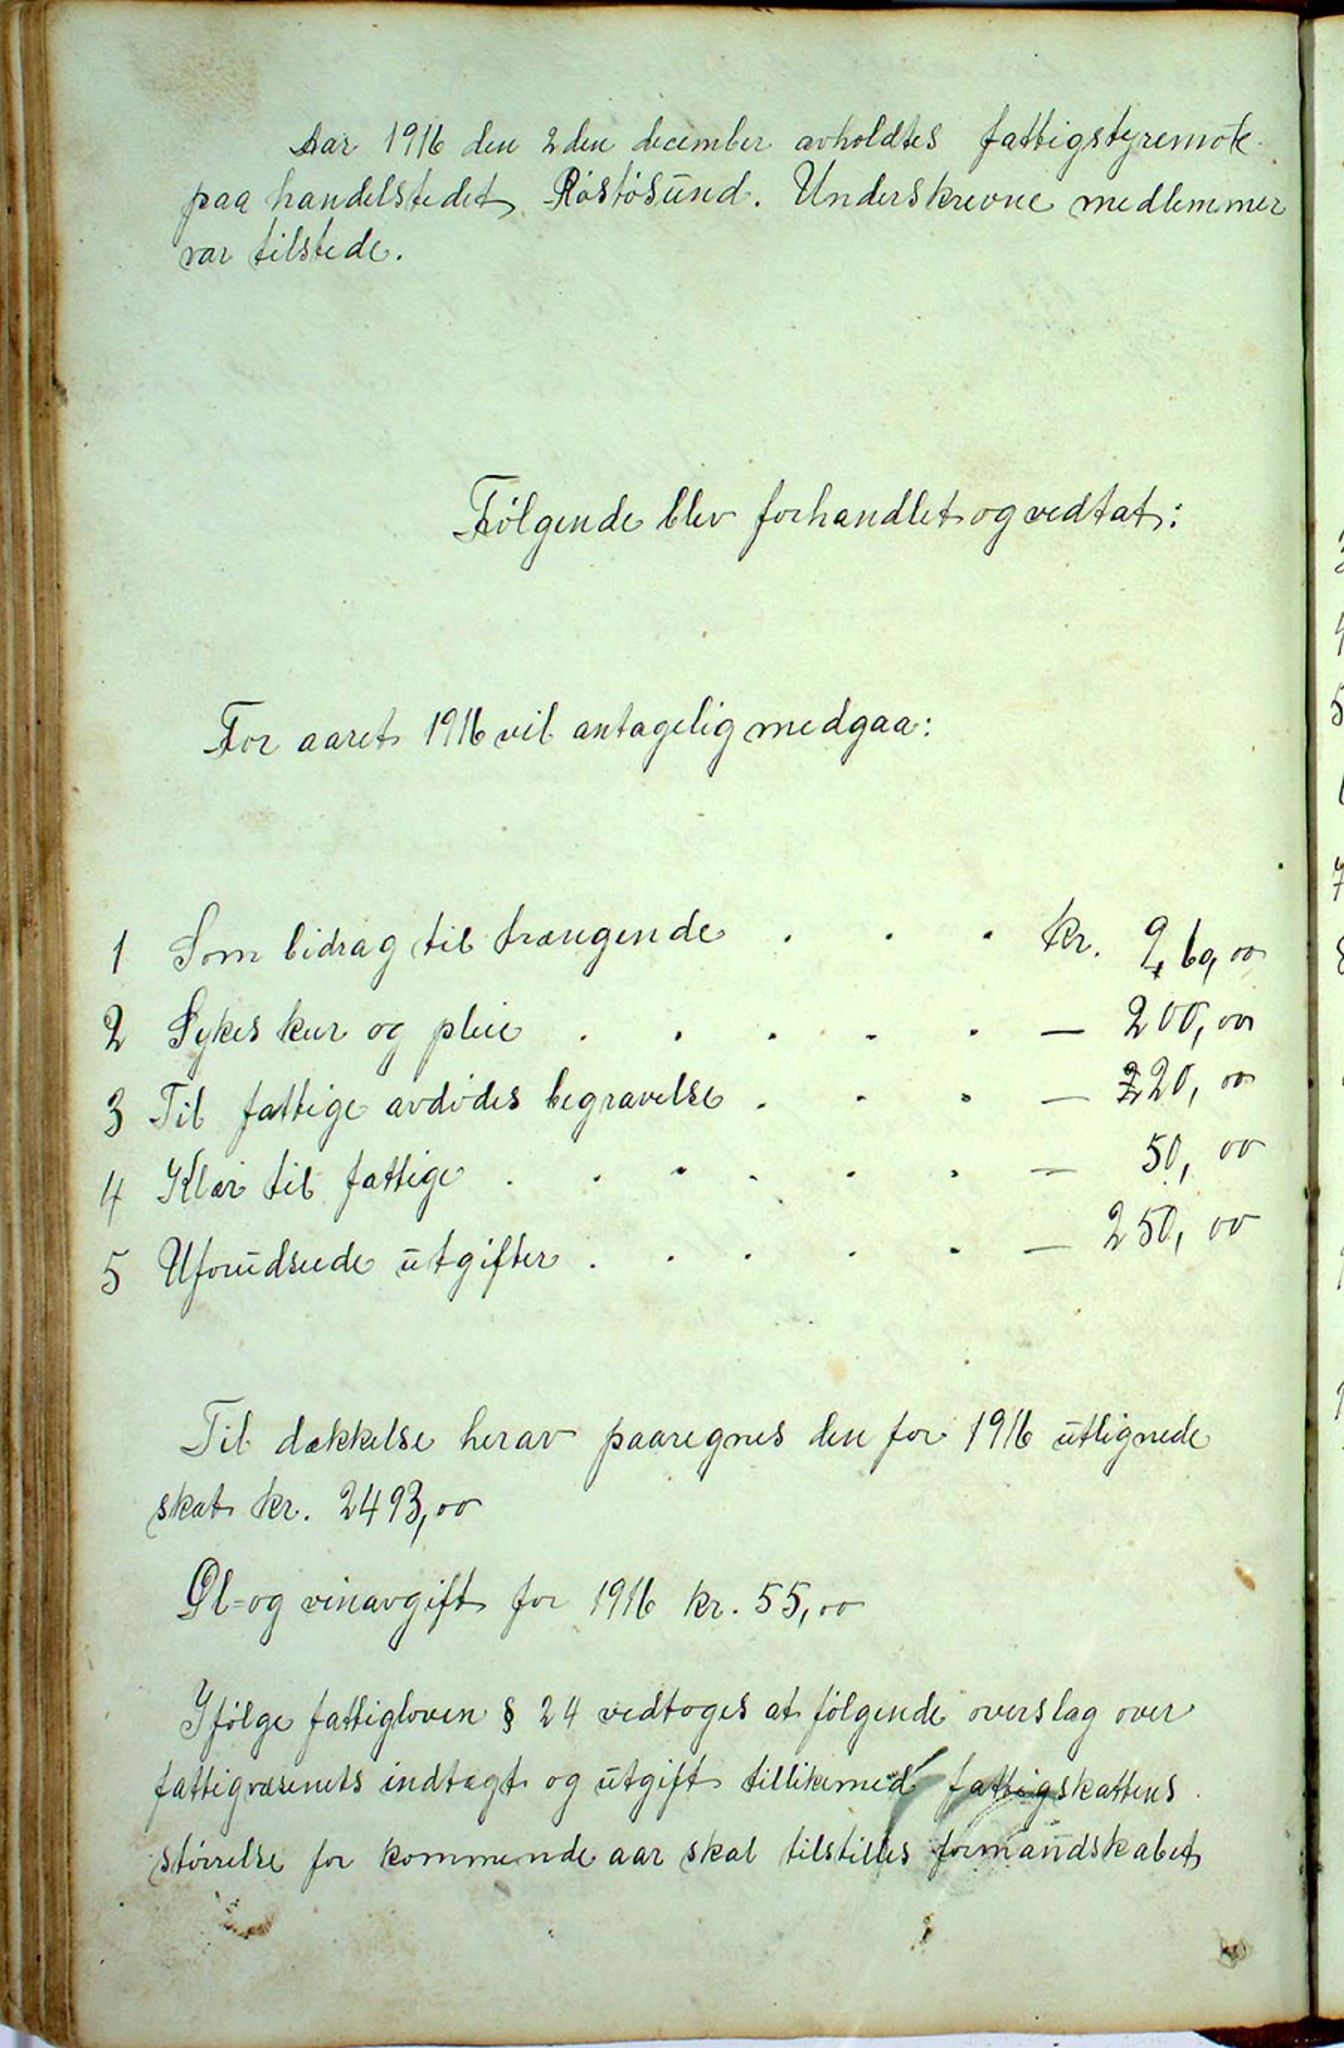 Aar 1916 den 2den december avholdtes fattigstyremøte
paa handelstedet Røstøsund. Underskrevne medlemmer
var tilstede.
Følgende blev forhandlet og vedtat:
For aaret 1916 vil antagelig medgaa:
1 Som bidrag til trængende . . . kr. 960,00
2 Sykes kur og pleie . . . . . — 200,00
3 Til fattige avdødes begravelse . . . — 220,00
4 Klær til fattige . . . . . . — 50,00
5 Uforudseede utgifter . . . . . — 250,00
Til dækkelse herav paaregnes den for 1916 utlignede
skat kr. 2493,00
Øl=og vinavgift for 1916 kr. 55,00
Ifølge fattigloven § 24 vedtoges at følgende overslag over
fattigvæsenets indtægt og utgift tillikemed fattigskattens
størrelse for kommende aar skal tilstilles formandskabet